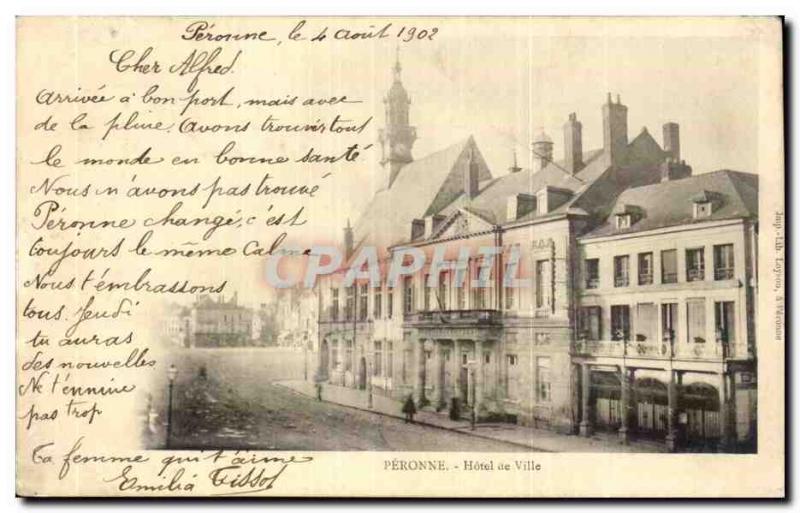 Péronne, le 4 août 1902
Cher Alfred.
Arrivée à bon port, mais avec
de la pluie. Avons trouvés tout
le monde en bonne santé
Nous n'avons pas trouvé
Péronne changé, c'est
toujours le même Calme
Nous t'embrassons
tous. Jeudi
tu auras
des nouvelles
Ne t'ennuie
pas trop
Ta femme qui t'aime
Emilia Tissot
CPARAMA.COM
PÉRONNE. - Hôtel de Ville
Imp. Lib. Loyson, à Péronne